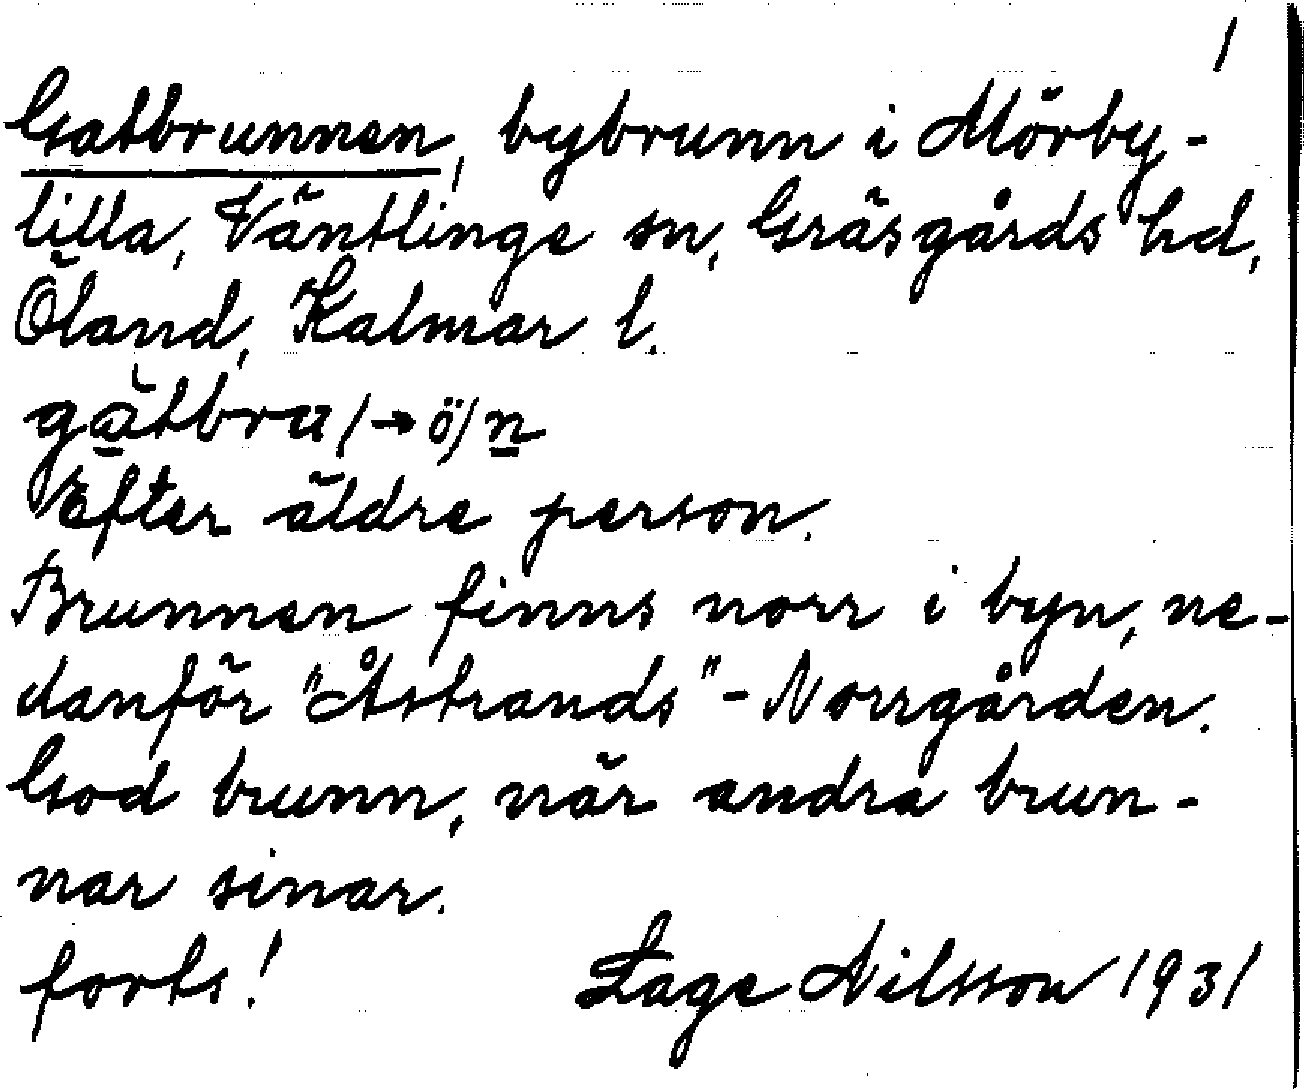 1
Gatbrunnen, bybrunn i Mörby-
lilla, Ventlinge sn, Gräsgårds hd,
Öland, Kalmar l.
gatbru/→ö/n
Efter äldre person.
Brunnen finns norr i byn, ne-
danför "Åstrands"-Norrgården.
God brunn, när andra brun-
nar sinar.
forts! Lage Nilsson 1931